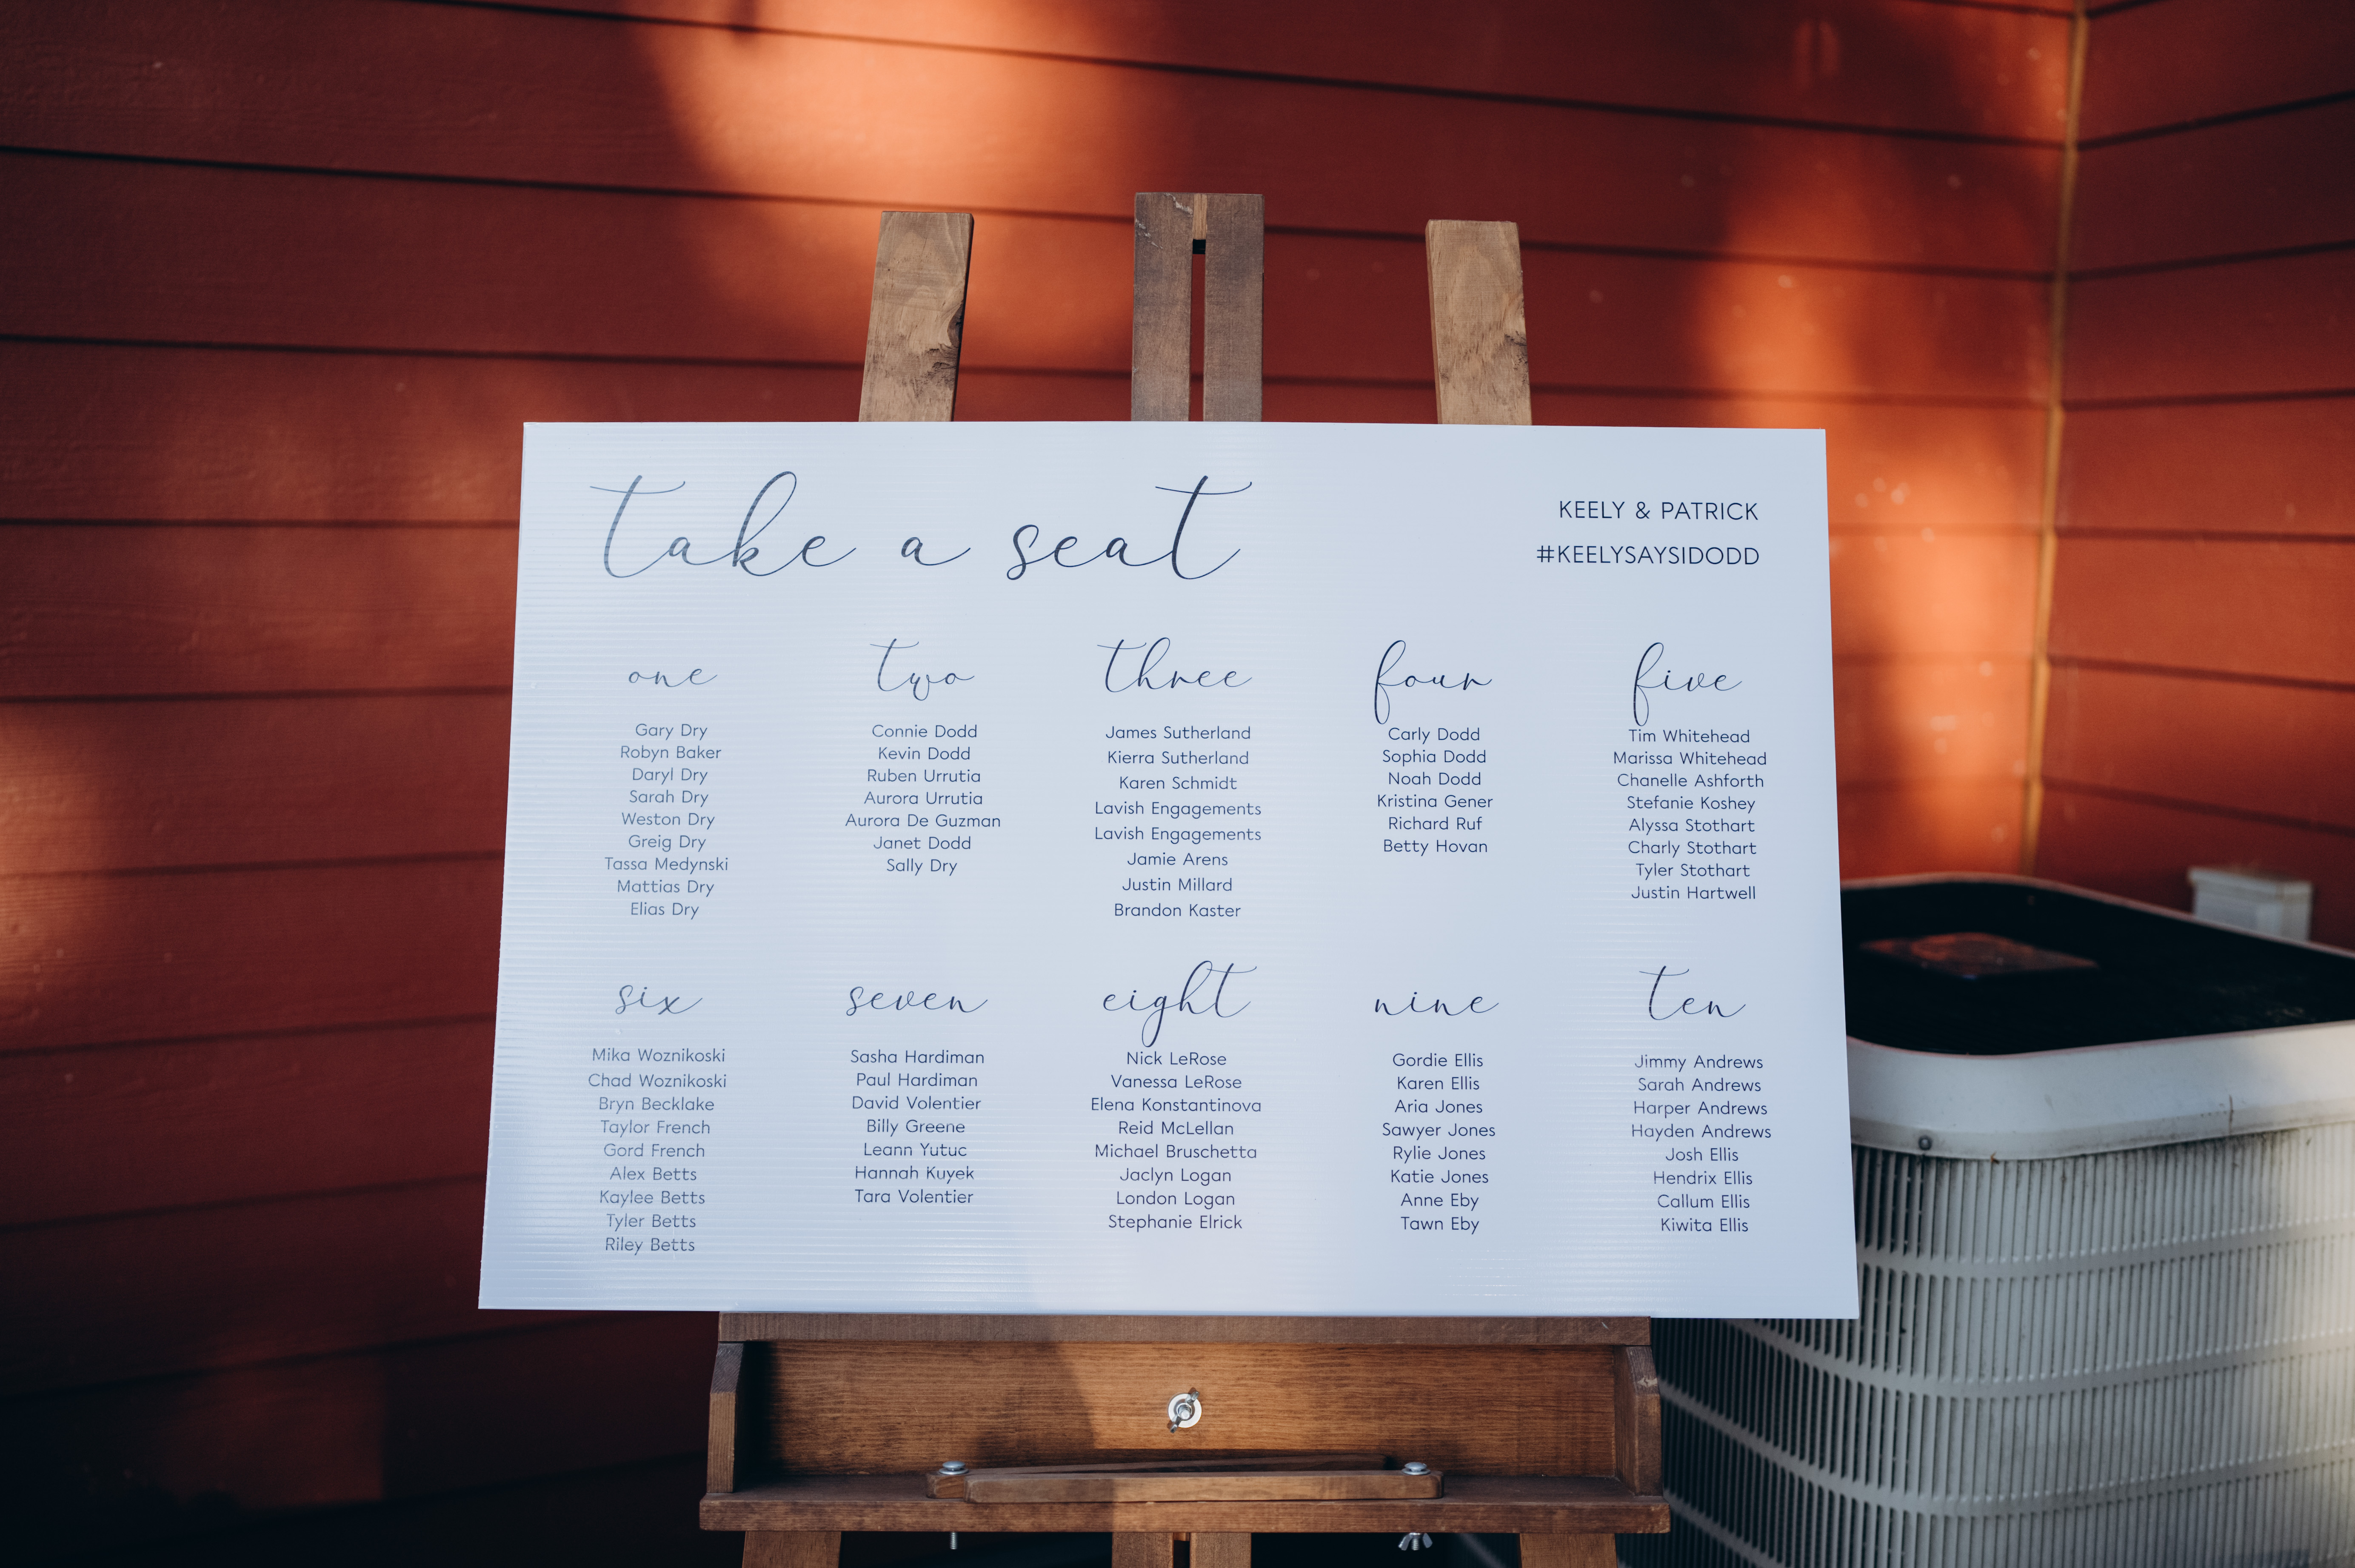 take a seat
KEELY & PATRICK
#KEELYSAYSIDODD
one
Gary Dry
Robyn Baker
Daryl Dry
Sarah Dry
Weston Dry
Greig Dry
Tassa Medynski
Mattias Dry
Elias Dry
two
Connie Dodd
Kevin Dodd
Ruben Urrutia
Aurora Urrutia
Aurora De Guzman
Janet Dodd
Sally Dry
three
James Sutherland
Kierra Sutherland
Karen Schmidt
Lavish Engagements
Lavish Engagements
Jamie Arens
Justin Millard
Brandon Kaster
four
Carly Dodd
Sophia Dodd
Noah Dodd
Kristina Gener
Richard Ruf
Betty Hovan
five
Tim Whitehead
Marissa Whitehead
Chanelle Ashforth
Stefanie Koshey
Alyssa Stothart
Charly Stothart
Tyler Stothart
Justin Hartwell
six
Mika Woznikoski
Chad Woznikoski
Bryn Becklake
Taylor French
Gord French
Alex Betts
Kaylee Betts
Tyler Betts
Riley Betts
seven
Sasha Hardiman
Paul Hardiman
David Volentier
Billy Greene
Leann Yutuc
Hannah Kuyek
Tara Volentier
eight
Nick LeRose
Vanessa LeRose
Elena Konstantinova
Reid McLellan
Michael Bruschetta
Jaclyn Logan
London Logan
Stephanie Elrick
nine
Gordie Ellis
Karen Ellis
Aria Jones
Sawyer Jones
Rylie Jones
Katie Jones
Anne Eby
Tawn Eby
ten
Jimmy Andrews
Sarah Andrews
Harper Andrews
Hayden Andrews
Josh Ellis
Hendrix Ellis
Callum Ellis
Kiwita Ellis